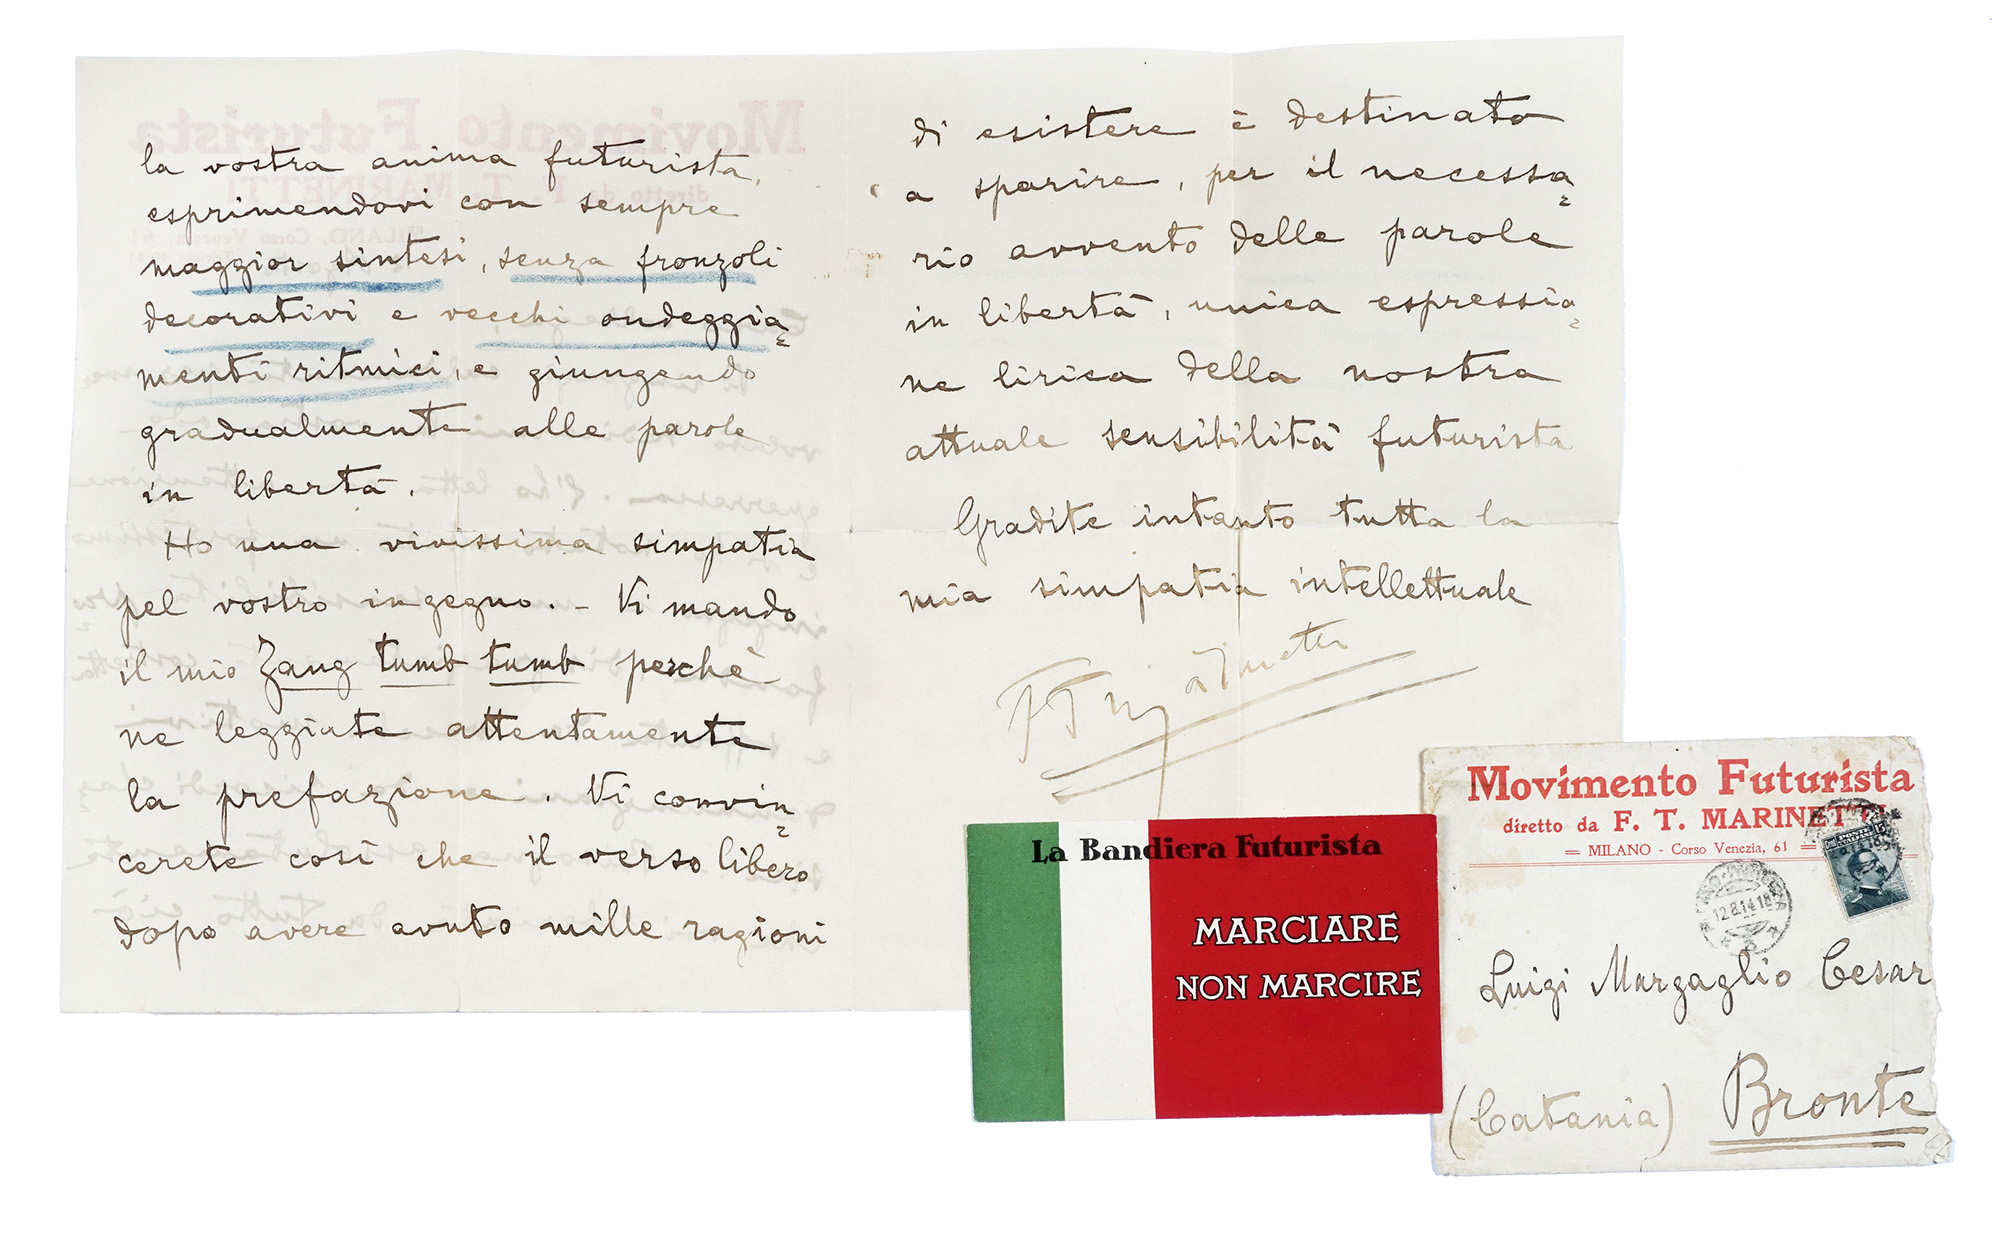 la vostra anima futurista,
esprimendovi con sempre
maggior sintesi, senza fronzoli
decorativi e vecchi ondeggia=
menti ritmici, e giungendo
gradualmente alle parole
in libertà.
Ho una vivissima simpatia
pel vostro ingegno. - Vi mando
il mio Zang tumb tumb perchè
ne leggiate attentamente
la prefazione. Vi convin=
cerete così che il verso libero
dopo avere avuto mille ragioni
di esistere è destinato
a sparire, per il necessa=
rio avvento delle parole
in libertà, unica espressio=
ne lirica della nostra
attuale sensibilità futurista
Gradite intanto tutta la
mia simpatia intellettuale
F T Marinetti
La Bandiera Futurista
MARCIARE
NON MARCIRE
Movimento Futurista
diretto da F. T. MARINETTI
MILANO - Corso Venezia, 61
12.8.14 18
Luigi Marzaglio Cesar
(Catania) Bronte